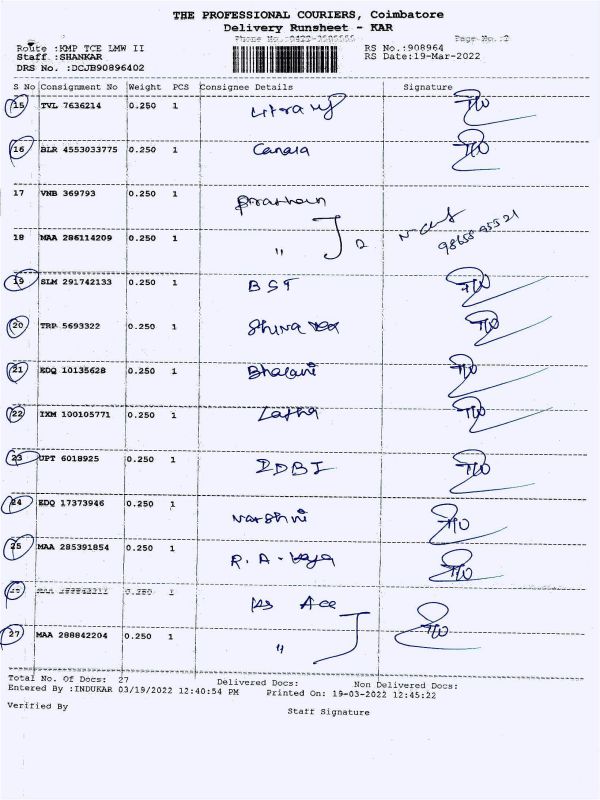 THE PROFESSIONAL COURIERS, Coimbatore
Delivery Runsheet - KAR
Page No.:2
Route :KMP TCE LMW II
RS No.:908964
Staff :SHANKAR
RS Date:19-Mar-2022
DRS No. :DCJB90896402
S No Consignment No Weight PCS Consignee Details Signature
15 TVL 7636214 0.250 1
16 BLR 4553033775 0.250 1 Canara
17 VNB 369793 0.250 1
18 MAA 286114209 0.250 1 "
19 SLM 291742133 0.250 1 BST
20 TRP 5693322 0.250 1 Shiva
21 EDQ 10135628 0.250 1 Bhavani
22 IXM 100105771 0.250 1 Latha
23 UPT 6018925 0.250 1 IDBI
24 EDQ 17373946 0.250 1 Varshni
25 MAA 285391854 0.250 1 R. A.
26 MAA 0.250 1 Ace
27 MAA 288842204 0.250 1 "
Total No. Of Docs: 27 Delivered Docs: Non Delivered Docs:
Entered By :INDUKAR 03/19/2022 12:40:54 PM Printed On: 19-03-2022 12:45:22
Verified By
Staff Signature